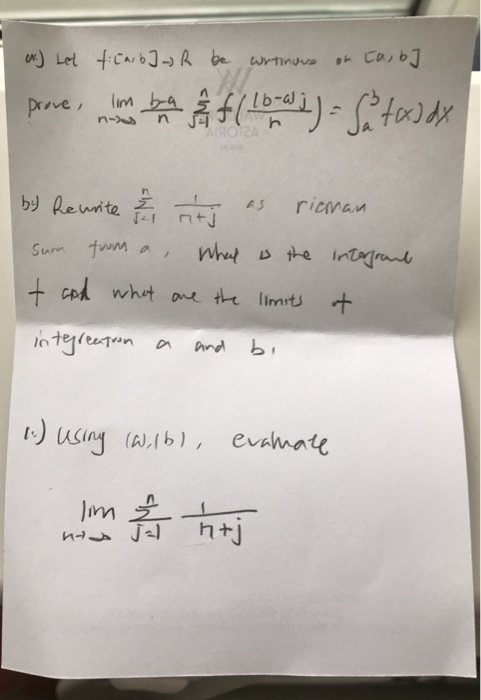 a.) Let f:[a,b]→R be continuous on [a,b]
prove, lim n→∞ b-a/n n Σ j=1 f((b-a)j/n) = ∫ₐᵇ f(x)dx
ASTORIA
b.) Rewrite n Σ j=1 1/n+j as rieman
sum from a, What is the integrand
f and what are the limits of
integration a and b.
c.) Using (a),(b), evaluate
lim n→∞ n Σ j=1 1/n+j